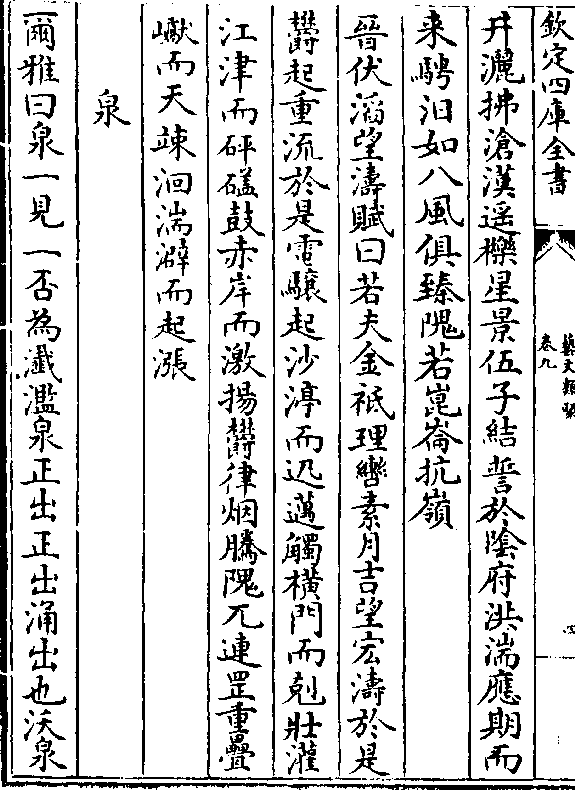 欽定四庫全書
藝文類聚
卷九
井灑拂滄漢遥櫟星景伍子結誓於陰府洪湍應期而
来騁汨如八風俱臻隗若崑崙抗嶺
晉伏滔望濤賦曰若夫金祗理轡素月吉望宏濤於是
欝起重流於是電驤起沙渟而迅邁觸橫門而剋壯灌
江津而砰礚鼓赤岸而激揚欝律烟騰隗兀連罡重疊
巘而天竦洄湍澼而起漲
泉
爾雅曰泉一見一否為瀸濫泉正出正出涌出也沃泉